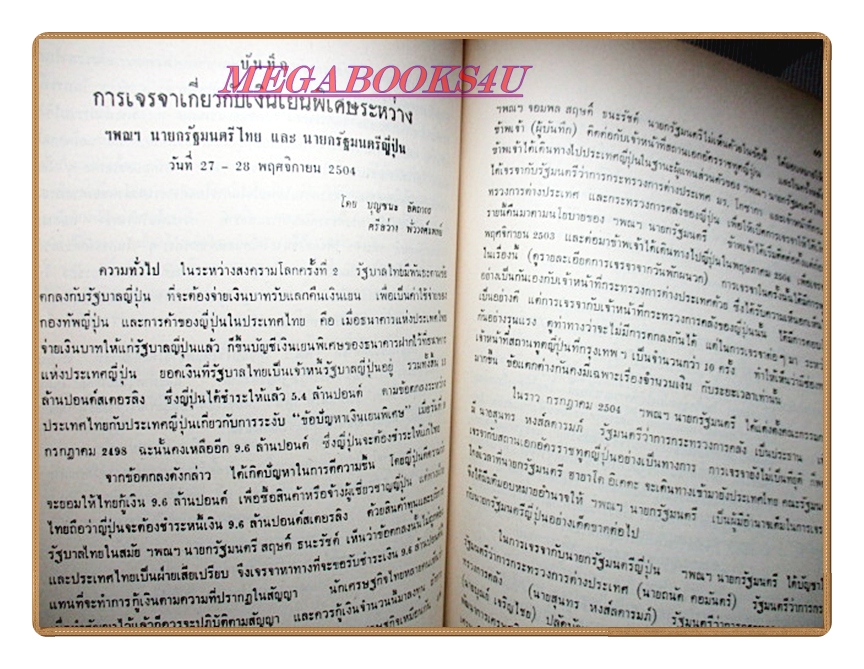 บันทึก
MEGABOOKS4U
การเจรจาเกี่ยวกับเงินเยนพิเศษระหว่าง
ฯพณฯ นายกรัฐมนตรีไทย และ นายกรัฐมนตรีญี่ปุ่น
วันที่ 27 - 28 พฤศจิกายน 2504
โดย บุญชนะ อัตถากร
ศรีสว่าง พัวงศ์แพทย์
ความทั่วไป ในระหว่างสงครามโลกครั้งที่ 2 รัฐบาลไทยมีพันธะตามข้อ
ตกลงกับรัฐบาลญี่ปุ่น ที่จะต้องจ่ายเงินบาทรับแลกคืนเงินเยน เพื่อเป็นค่าใช้จ่ายของ
กองทัพญี่ปุ่น และการค้าของญี่ปุ่นในประเทศไทย คือ เมื่อธนาคารแห่งประเทศไทย
จ่ายเงินบาทให้แก่รัฐบาลญี่ปุ่นแล้ว ก็ขึ้นบัญชีเงินเยนพิเศษของธนาคารฝากไว้ที่ธนาคาร
แห่งประเทศญี่ปุ่น ยอดเงินที่รัฐบาลไทยเป็นเจ้าหนี้รัฐบาลญี่ปุ่นอยู่ รวมทั้งสิ้น 15
ล้านปอนด์สเตอรลิง ซึ่งญี่ปุ่นได้ชำระให้แล้ว 5.4 ล้านปอนด์ ตามข้อตกลงระหว่าง
ประเทศไทยกับประเทศญี่ปุ่นเกี่ยวกับการระงับ “ข้อปัญหาเงินเยนพิเศษ” เมื่อวันที่ 9
กรกฎาคม 2498 ฉะนั้นคงเหลืออีก 9.6 ล้านปอนด์ ซึ่งญี่ปุ่นจะต้องชำระให้แก่ไทย
จากข้อตกลงดังกล่าว ได้เกิดปัญหาในการตีความขึ้น โดยญี่ปุ่นตีความว่า
จะยอมให้ไทยกู้เงิน 9.6 ล้านปอนด์ เพื่อซื้อสินค้าหรือจ้างผู้เชี่ยวชาญญี่ปุ่น แต่ทางไทย
ไทยถือว่าญี่ปุ่นจะต้องชำระหนี้เงิน 9.6 ล้านปอนด์สเตอรลิง ด้วยสินค้าทุนและบริการ
รัฐบาลไทยในสมัย ฯพณฯ นายกรัฐมนตรี สฤษดิ์ ธนะรัชต์ เห็นว่าข้อตกลงนั้นไม่ถูกต้อง
และประเทศไทยเป็นฝ่ายเสียเปรียบ จึงเจรจาหาทางที่จะขอรับชำระเงิน 9.6 ล้านปอนด์
แทนที่จะทำการกู้เงินตามความที่ปรากฏในสัญญา นักเศรษฐกิจไทยหลายคน
ไว้แล้วก็ควรจะปฏิบัติตามสัญญา และควรกู้เงินจำนวนนี้มาลงทุน
ฯพณฯ จอมพล สฤษดิ์ ธนะรัชต์ นายกรัฐมนตรีไม่เห็นด้วยในข้อนี้
ข้าพเจ้า (ผู้บันทึก) ติดต่อกับเจ้าหน้าที่สถานเอกอัครราชทูตญี่ปุ่น
ข้าพเจ้าได้เดินทางไปประเทศญี่ปุ่นในฐานะผู้แทนส่วนตัวของ ฯพณฯ นายกรัฐมนตรี
ได้เจรจากับรัฐมนตรีว่าการกระทรวงการต่างประเทศ มร. โคซากา และเจ้าหน้าที่
ทรวงการต่างประเทศ และกระทรวงการคลังของญี่ปุ่น เพื่อให้เปิดการเจรจา
รายนี้คืนมาตามนโยบายของ ฯพณฯ นายกรัฐมนตรี ข้าพเจ้าได้เริ่มติดต่อ
พฤศจิกายน 2503 และต่อมาข้าพเจ้าได้เดินทางไปญี่ปุ่นในพฤษภาคม 2504 เพื่อเจรจา
ในเรื่องนี้ (ดูรายละเอียดการเจรจาจากบันทึกผนวก) การเจรจาในครั้งนั้นได้มีการ
อย่างเป็นกันเองกับเจ้าหน้าที่กระทรวงการต่างประเทศด้วย ซึ่งได้รับความเห็นอกเห็นใจ
เป็นอย่างดี แต่การเจรจากับเจ้าหน้าที่กระทรวงการคลังของญี่ปุ่นนั้น ได้มีการ
กันอย่างรุนแรง ดูท่าทางว่าจะไม่มีการตกลงกันได้ แต่ในการเจรจาต่อๆ มา ระหว่าง
เจ้าหน้าที่สถานทูตญี่ปุ่นที่กรุงเทพฯ เป็นจำนวนกว่า 10 ครั้ง ทำให้เห็นว่ามีช่องทาง
มากขึ้น ข้อแตกต่างกันคงมีเฉพาะเรื่องจำนวนเงิน กับระยะเวลาเท่านั้น
ในราว กรกฎาคม 2504 ฯพณฯ นายกรัฐมนตรี ได้แต่งตั้งคณะกรรมการ
มี นายสุนทร หงส์ลดารมภ์ รัฐมนตรีว่าการกระทรวงการคลัง เป็นประธาน
เจรจากับสถานเอกอัครราชทูตญี่ปุ่นอย่างเป็นทางการ การเจรจายังไม่เป็นที่ยุติ
ใกล้เวลาที่นายกรัฐมนตรี ฮายาโต อิเคดะ จะเดินทางเข้ามายังประเทศไทย คณะรัฐมนตรี
จึงได้มีมติมอบหมายอำนาจให้ ฯพณฯ นายกรัฐมนตรี เป็นผู้มีอำนาจเต็มในการเจรจา
กับนายกรัฐมนตรีญี่ปุ่นอย่างเด็ดขาดต่อไป
ในการเจรจากับนายกรัฐมนตรีญี่ปุ่น ฯพณฯ นายกรัฐมนตรี ได้บัญชา
รัฐมนตรีว่าการกระทรวงการต่างประเทศ (นายถนัด คอมันตร์) รัฐมนตรีว่าการกระ
ทรวงการคลัง (นายสุนทร หงส์ลดารมภ์) รัฐมนตรีว่าการ